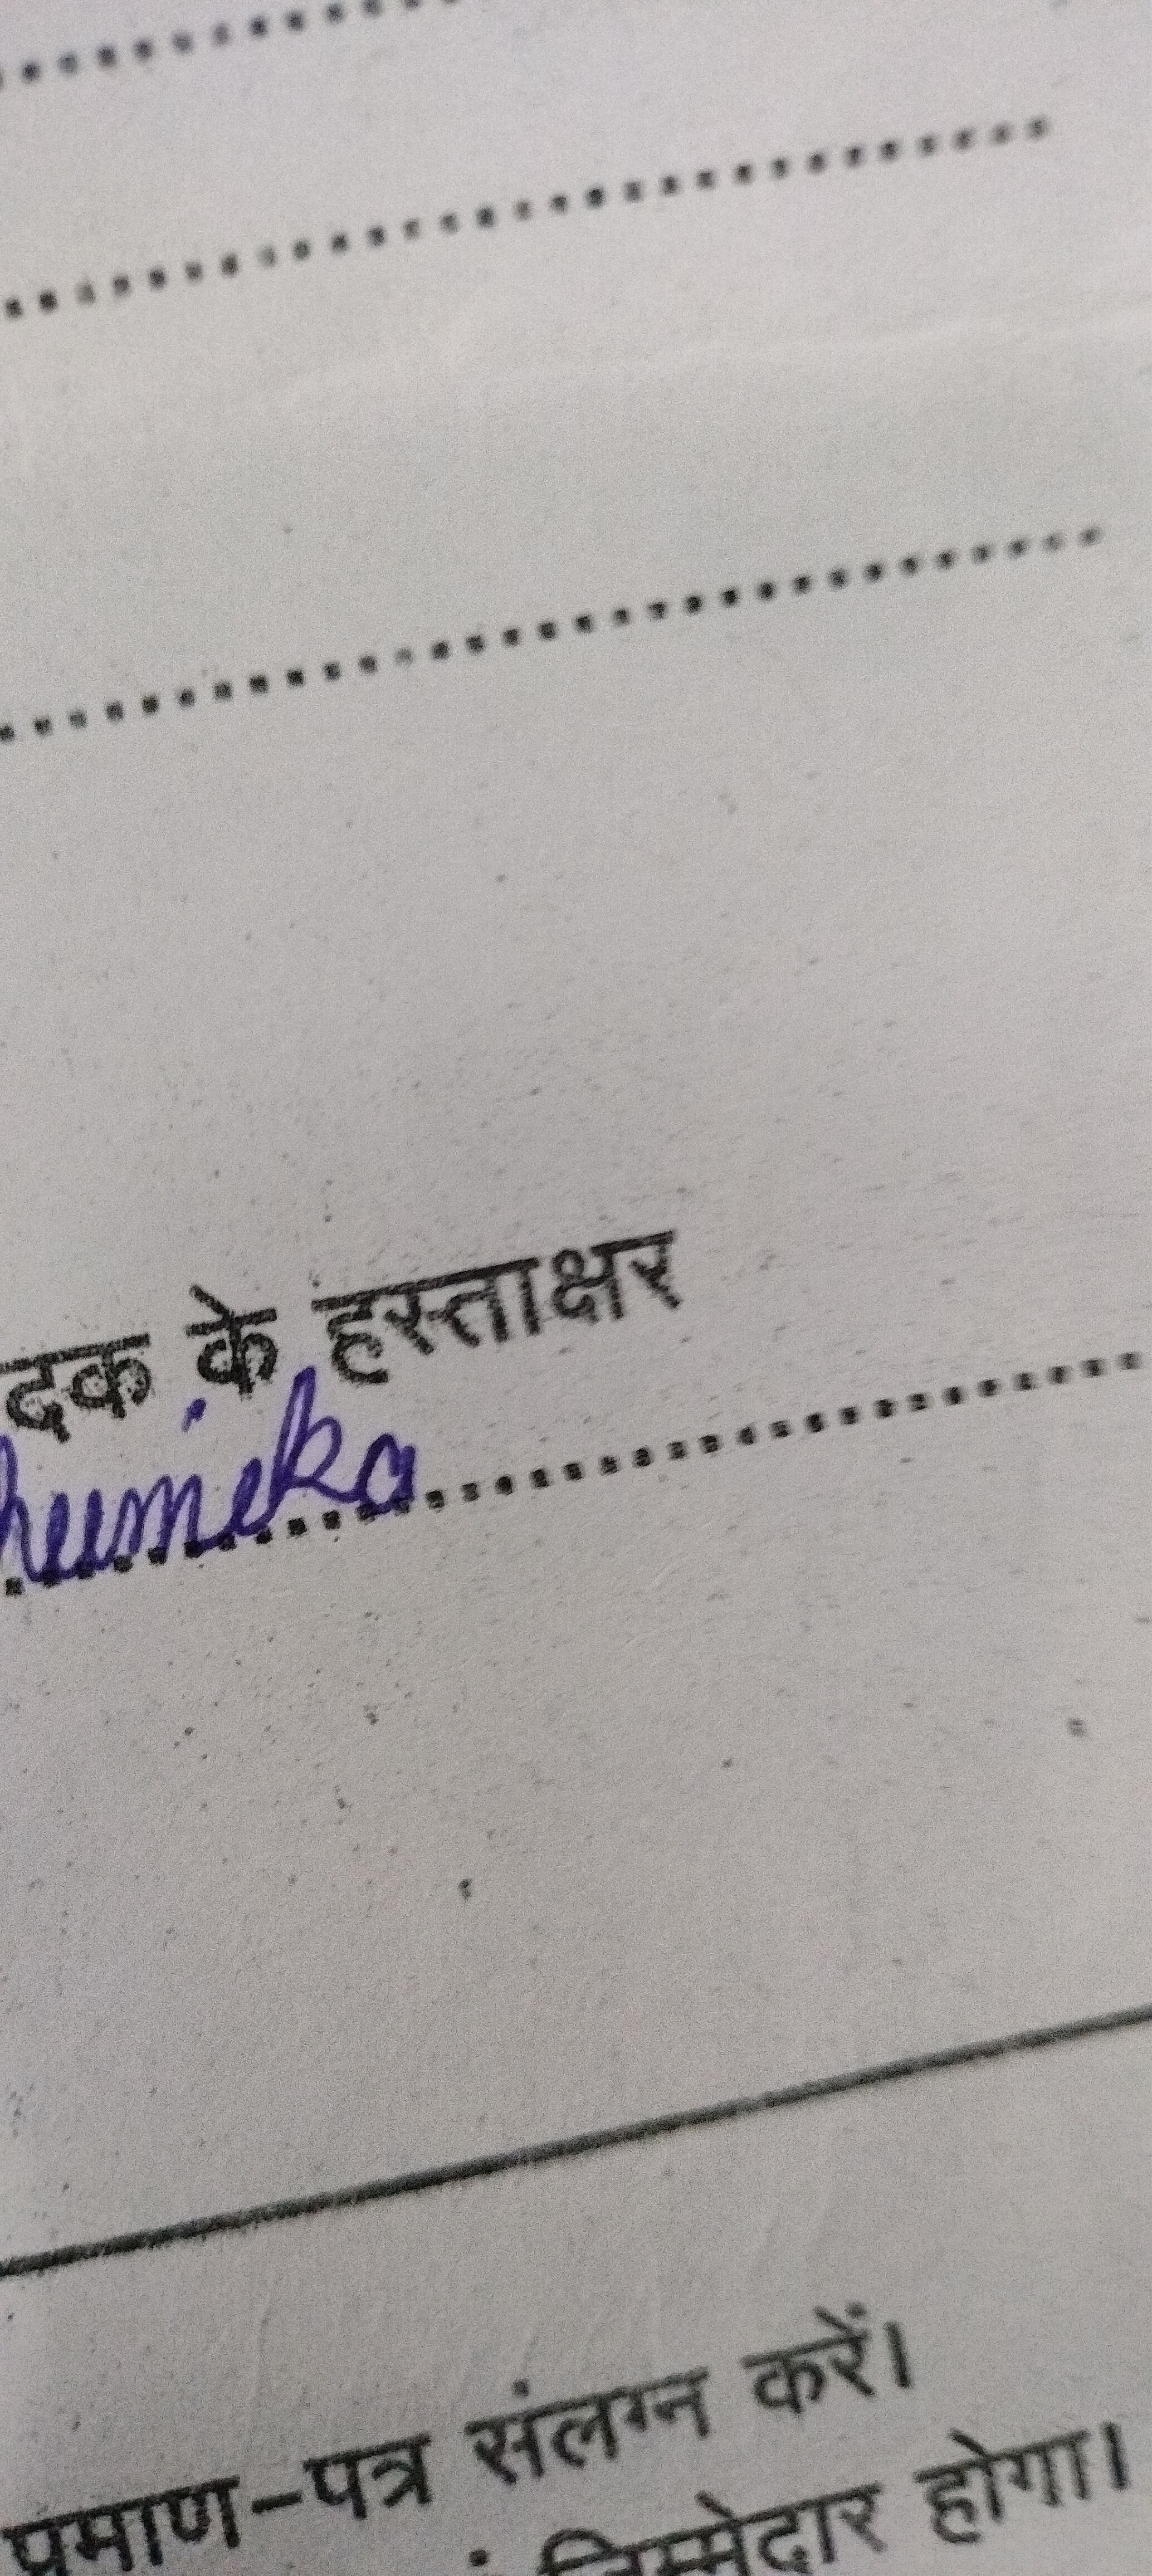 दक के हस्ताक्षर
humika
प्रमाण-पत्र संलग्न करें।
जिम्मेदार होगा।